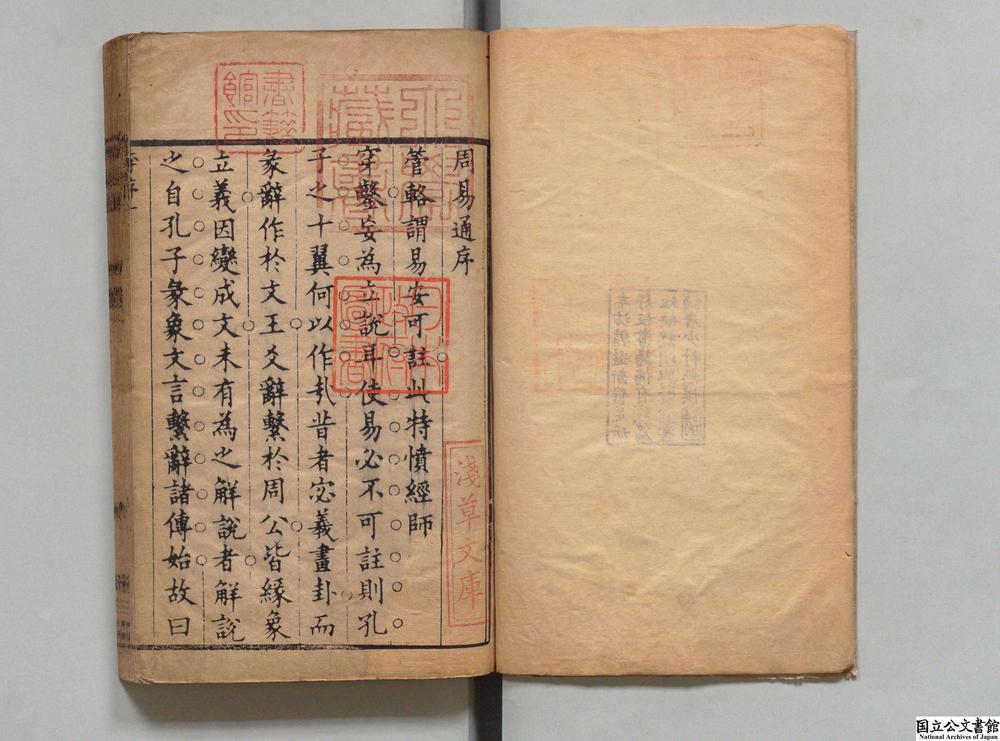 周易通序
菅輅謂易安可註此特憤經師
穿鑿妄為立說耳使易必不可註則孔
子之十翼何以作㢤昔者宓義畫卦而
彖辭作於文王爻辭繫於周公皆緣象
立義因變成文未有為之觧說者觧說
之自孔子彖象文言繫辭諸傳始故曰
書籍館印
日本政府圖書
淺草文庫
国立公文書館
National Archives of Japan